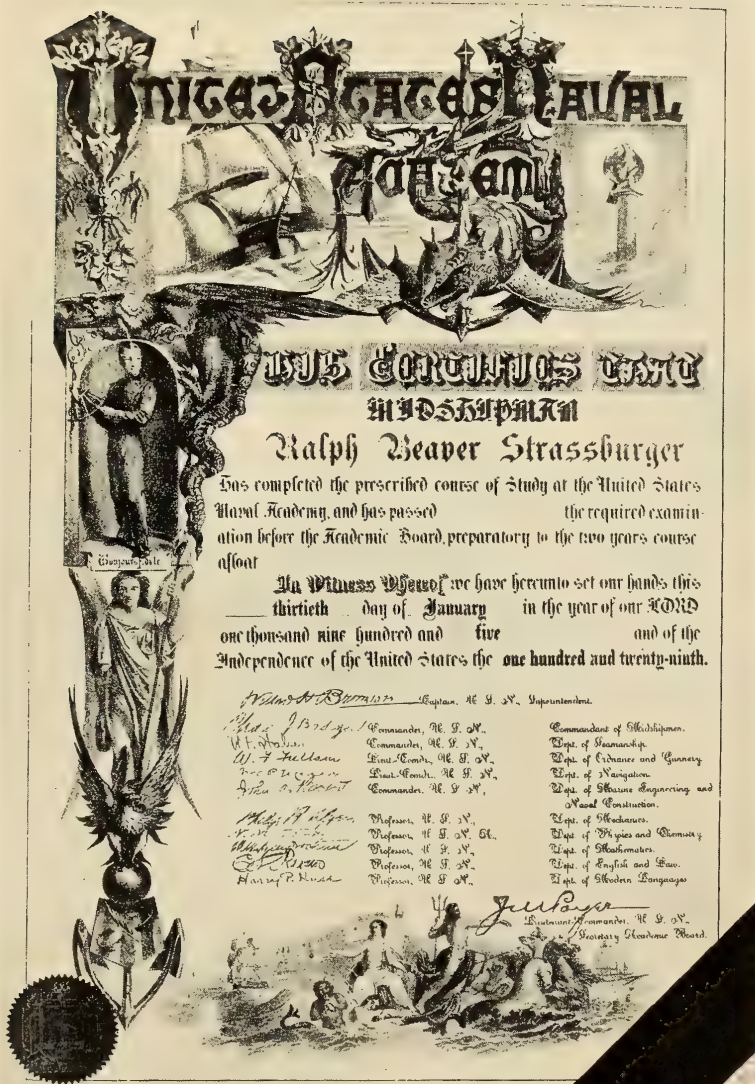 United States Naval
Academy
This Certifies that
MIDSHIPMAN
Ralph Beaver Strassburger
Has completed the prescribed course of Study at the United States
Naval Academy, and has passed the required examin-
ation before the Academic Board, preparatory to the two years course
afloat
In Witness Whereof we have hereunto set our hands this
thirtieth day of January in the year of our LORD
one thousand nine hundred and five and of the
Independence of the United States the one hundred and twenty-ninth.
Captain, U. S. N., Superintendent.
Commander, U. S. N., Commandant of Midshipmen.
Commander, U. S. N., Dept. of Seamanship.
W. F. Fullam Lieut-Comdr., U. S. N., Dept. of Ordnance and Gunnery
Lieut-Comdr., U. S. N., Dept. of Navigation
Commander, U. S. N., Dept. of Marine Engineering and
Naval Construction.
Professor, U. S. N., Dept. of Mechanics.
Professor, U. S. N., Dept. of Physics and Chemistry
Professor, U. S. N., Dept. of Mathematics.
Professor, U. S. N., Dept. of English and Law.
Harry P. Professor, U. S. N., Dept. of Modern Languages
Lieutenant-Commander, U. S. N.,
Secretary Academic Board.